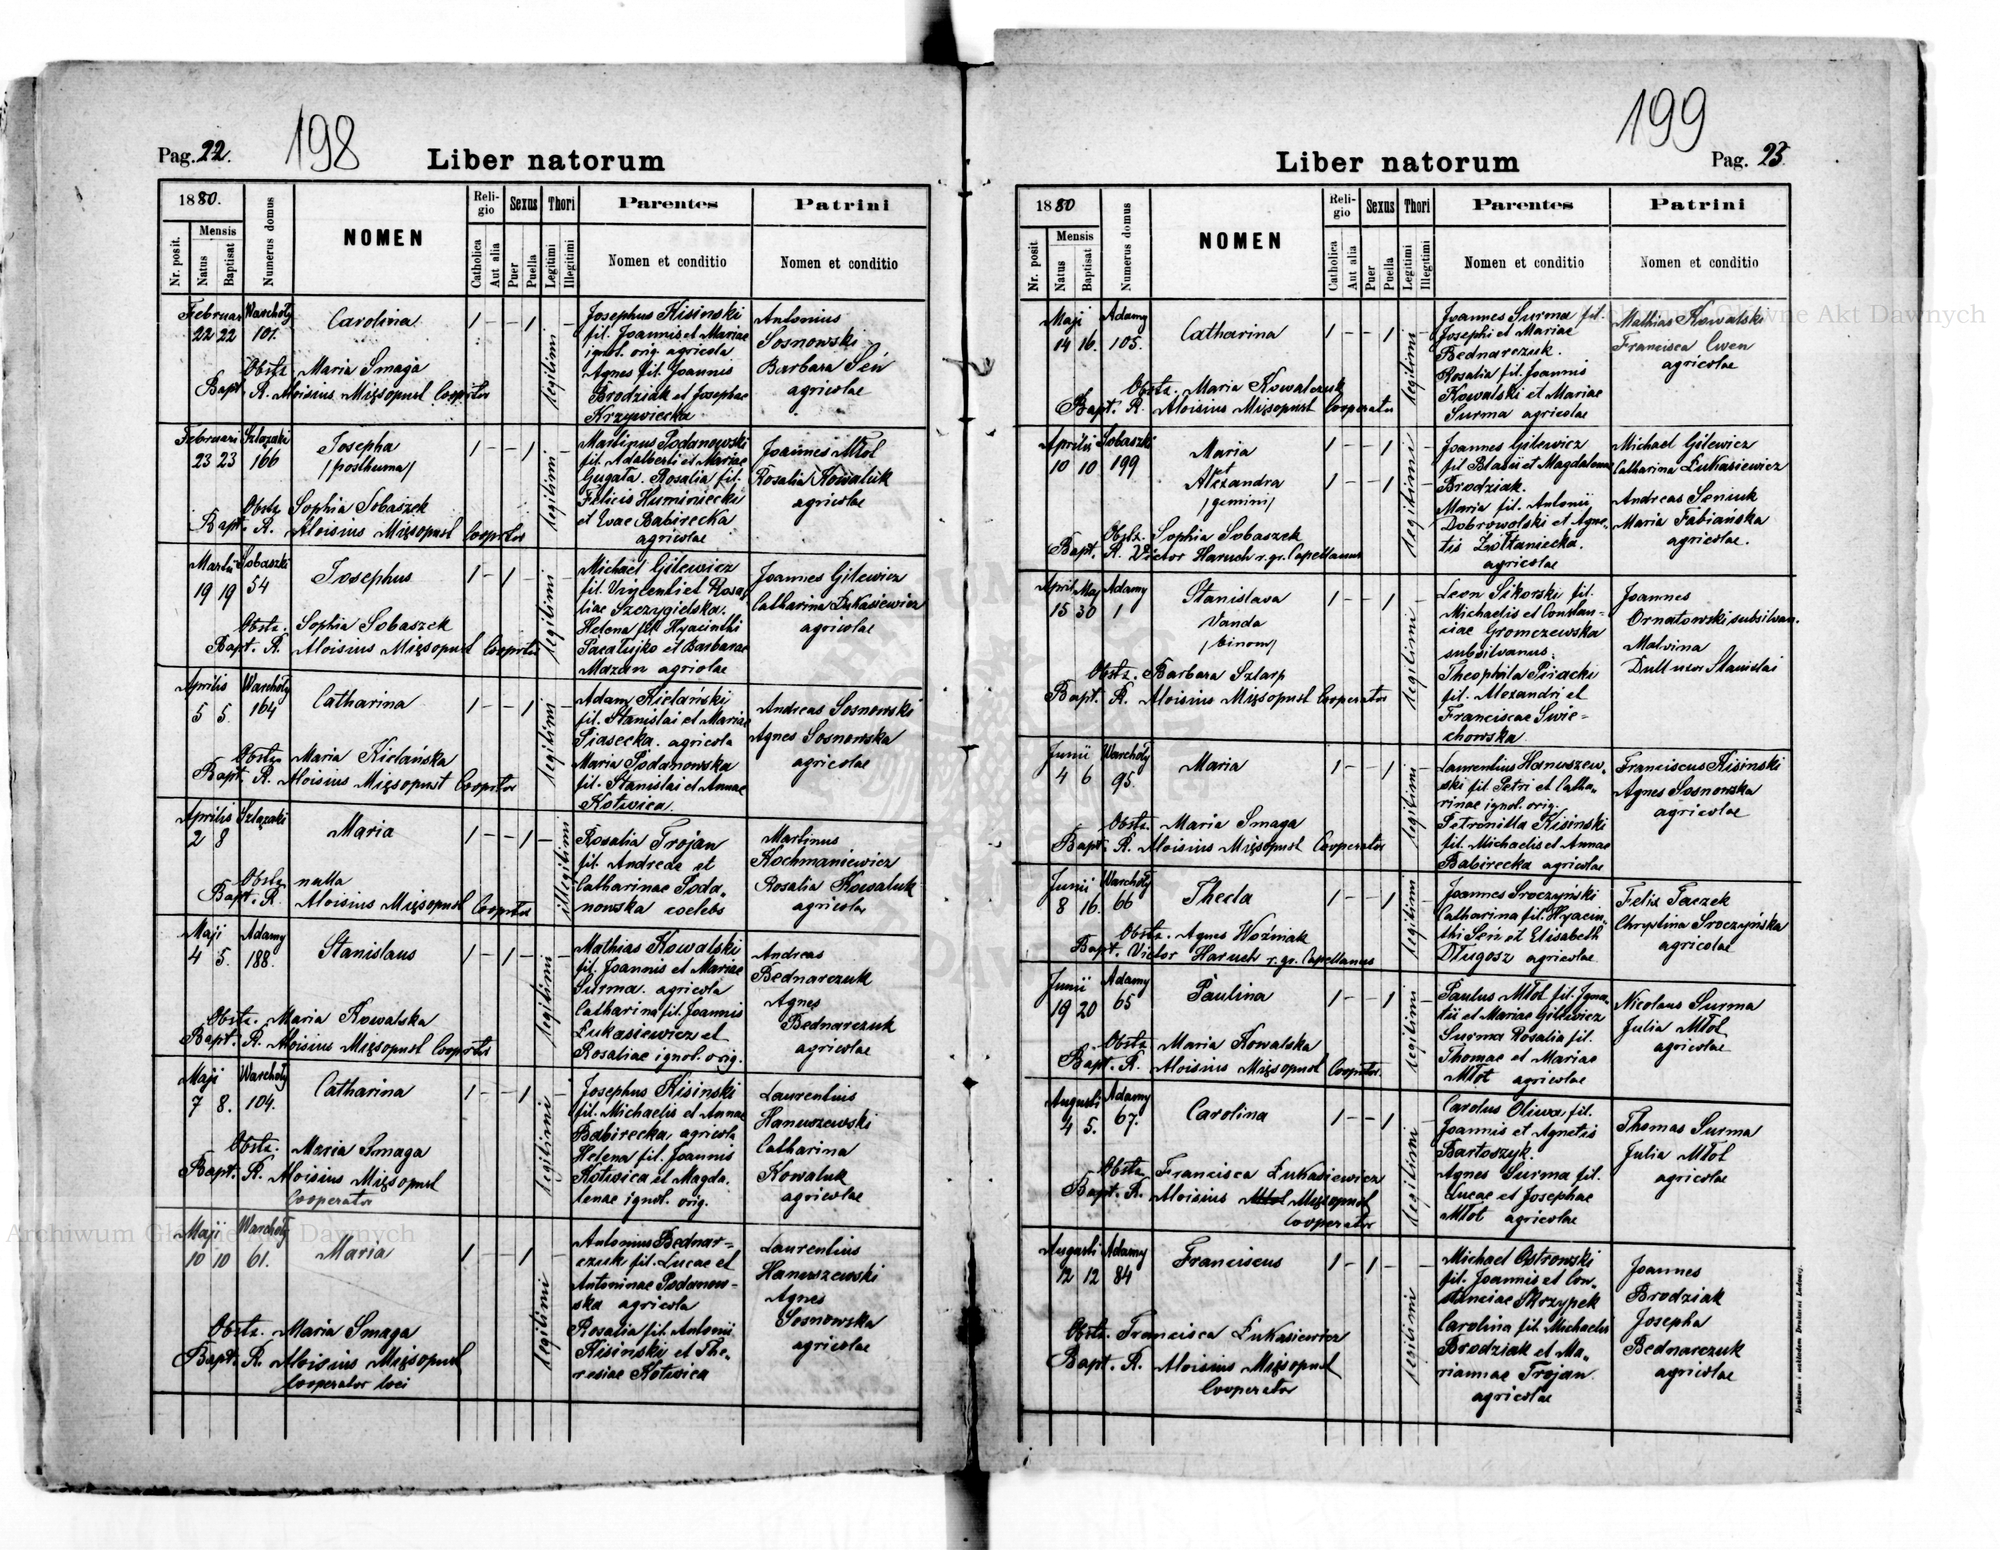 Pag. 22.
198
Liber natorum
1880.
Nr. posit.
Mensis
Natus
Baptisat
Numerus domus
NOMEN
Religio
Catholica
Aut alia
Sexus
Puer
Puella
Thori
Legitimi
Illegitimi
Parentes
Nomen et conditio
Patrini
Nomen et conditio
Februar Warchoły
22 22 101.
Carolina
1 - - 1 -
legitimi
Josephus Kisinski
fil. Joannis et Mariae
ignot. orig. agricola
Agnes fil. Joannis
Brodziak et Josephae
Krzywiecka
Antonius
Sosnowski
Barbara Sén
agricolae
Obstz. Maria Smaga
Bapt. R. Aloisius Mięsopust Cooprtor
Februari Szlązaki
23 23 166
Josepha
/posthuma/
1 - - 1 -
legitimi
Martinus Podanowski
fil. Adalberti et Mariae
Gugała. Rosalia fil.
Felicis Huminiecki
et Evae Babirecka
agricolae
Joannes Młot
Rosalia Kowaluk
agricolae
Obstz Sophia Sobaszek
Bapt. R. Aloisius Mięsopust Cooprtor
Martii Sobaszki
19 19 54
Josephus
1 - 1 - -
legitimi
Michael Gilewicz
fil. Vincentii et Rosaliae
Szczygielska.
Helena fil. Hyacinthi
Pacałujko et Barbarae
Mazan agriolae
Joannes Gilewicz
Catharina Łukasiewicz
agricolae
Obstz. Sophia Sobaszek
Bapt. R. Aloisius Mięsopust Cooprtor
Aprilis Warchoły
5 5. 164
Catharina
1 - - 1 -
legitimi
Adam Kielański
fil. Stanislai et Mariae
Piasecka. agricola
Maria Podanowska
fil. Stanislai et Annae
Kotwica.
Andreas Sosnowski
Agnes Sosnowska
agricolae
Obstz Maria Kielańska
Bapt. R. Aloisius Mięsopust Cooprtor
Aprilis Szlązaki
2 8
Maria
1 - - 1 -
illegitimi
Rosalia Trojan
fil. Andreae et
Catharinae Poda-
nowska coelebs
Martinus
Kochmaniewicz
Rosalia Kowaluk
agricolae
Obstz. nulla
Bapt. R. Aloisius Mięsopust Cooprtor
Maji Adamy
4 5. 188.
Stanislaus
1 - 1 - -
legitimi
Mathias Kowalski
fil. Joannis et Mariae
Surma. agricola
Catharina fil. Joannis
Łukasiewicz et
Rosaliae ignot. orig.
Andreas
Bednarczuk
Agnes
Bednarczuk
agricolae
Obstz. Maria Kowalska
Bapt. R. Aloisius Mięsopust Cooprtor
Maji Warchoły
7 8. 104.
Catharina
1 - - 1 -
legitimi
Josephus Kisinski
fil. Michaelis et Annae
Babirecka, agricola
Helena fil. Joannis
Kotwica et Magda-
lenae ignot. orig.
Laurentius
Hanuszewski
Catharina
Kowaluk
agricolae
Obstz. Maria Smaga
Bapt. R. Aloisius Mięsopust
Cooperator
Maji Warchoły
10 10 61.
Maria
1 - - 1 -
legitimi
Antonius Bednar-
czuk fil. Lucae et
Antoninae Podanow-
ska agricola
Rosalia fil. Antonii
Kisinski et The-
resiae Kotwica
Laurentius
Hanuszewski
Agnes
Sosnowska
agricolae
Obstz. Maria Smaga
Bapt. R. Aloisius Mięsopust
Cooperator loci
Archiwum Główne Akt Dawnych
199
Liber natorum
Pag. 23.
1880
Nr. posit.
Mensis
Natus
Baptisat
Numerus domus
NOMEN
Religio
Catholica
Aut alia
Sexus
Puer
Puella
Thori
Legitimi
Illegitimi
Parentes
Nomen et conditio
Patrini
Nomen et conditio
Archiwum Główne Akt Dawnych
Maji Adamy
14 16. 105.
Catharina
1 - - 1 -
legitimi
Joannes Surma fil.
Josephi et Mariae
Bednarczuk.
Rosalia fil. Joannis
Kowalski et Mariae
Surma agricolae
Mathias Kowalski
Francisca Cwen
agricolae
Obstz. Maria Kowalczuk
Bapt. R. Aloisius Mięsopust Cooperator
Aprilis Sobaszki
10 10 199
Maria
et
Alexandra
/gemini/
1 - - 1 -
1 - - 1 -
legitimi
Joannes Gilewicz
fil Blasii et Magdalenae
Brodziak.
Maria fil. Antonii
Dobrowolski et Agne-
tis Żółtaniecka.
agricolae
Michael Gilewicz
Catharina Łukasiewicz
Andreas Seniuk
Maria Fabiańska
agricolae.
Obstz. Sophia Sobaszek
Bapt. R. Victor Haruch r. gr. Capellanus
April Maj Adamy
15 30 1
Stanislava
Vanda
/binom/
1 - - 1 -
legitimi
Leon Sikorski fil.
Michaelis et Constan-
ciae Gromczewska
subsilvanus.
Theophila Piriacki
fil. Alexandri et
Franciscae Swie-
chowska
Joannes
Ornatowski subsilvan.
Malvina
Dull uxor Stanislai
Obstz. Barbara Szlarp
Bapt. R. Aloisius Mięsopust Cooperator
Junii Warchoły
4 6 95.
Maria
1 - - 1 -
legitimi
Laurentius Hanuszew-
ski fil Petri et Catha-
rinae ignot. orig.
Petronilla Kisinski
fil. Michaelis et Annae
Babirecka agricolae
Franciscus Kisinski
Agnes Sosnowska
agricolae
Obstz. Maria Smaga
Bapt. R. Aloisius Mięsopust Cooperator
Junii Warchoły
8 16. 66
Thecla
1 - - 1 -
legitimi
Joannes Sroczyński
Catharina fil. Hyacin-
thi Sén et Elisabeth
Długosz agricolae
Felix Taczek
Chrystina Sroczyńska
agricolae
Obstz. Agnes Woźniak
Bapt. Victor Haruch r. gr. Capellanus
Junii Adamy
19 20 65
Paulina
1 - - 1 -
legitimi
Paulus Młot fil. Igna-
tii et Mariae Gilewicz
Surma Rosalia fil.
Thomae et Mariae
Młot agricolae
Nicolaus Surma
Julia Młot
agricolae
Obstz Maria Kowalska
Bapt. R. Aloisius Mięsopust Cooprtor.
Augusti Adamy
4 5. 67.
Carolina
1 - - 1
legitimi
Carolus Oliwa fil.
Joannis et Agnetis
Bartoszyk.
Agnes Surma fil.
Lucae et Josephae
Młot agricolae
Thomas Surma
Julia Młot
agricolae
Obstz. Francisca Łukasiewicz
Bapt. R. Aloisius Mięsopust
Cooperator
Augusti Adamy
12 12 84
Franciscus
1 - 1 - -
legitimi
Michael Ostrowski
fil. Joannis et Con-
stanciae Skrzypek
Carolina fil. Michaelis
Brodziak et Ma-
riannae Trojan.
agricolae
Joannes
Brodziak
Josepha
Bednarczuk
agricolae
Obstz. Francisca Łukasiewicz
Bapt. R. Aloisius Mięsopust
Cooperator